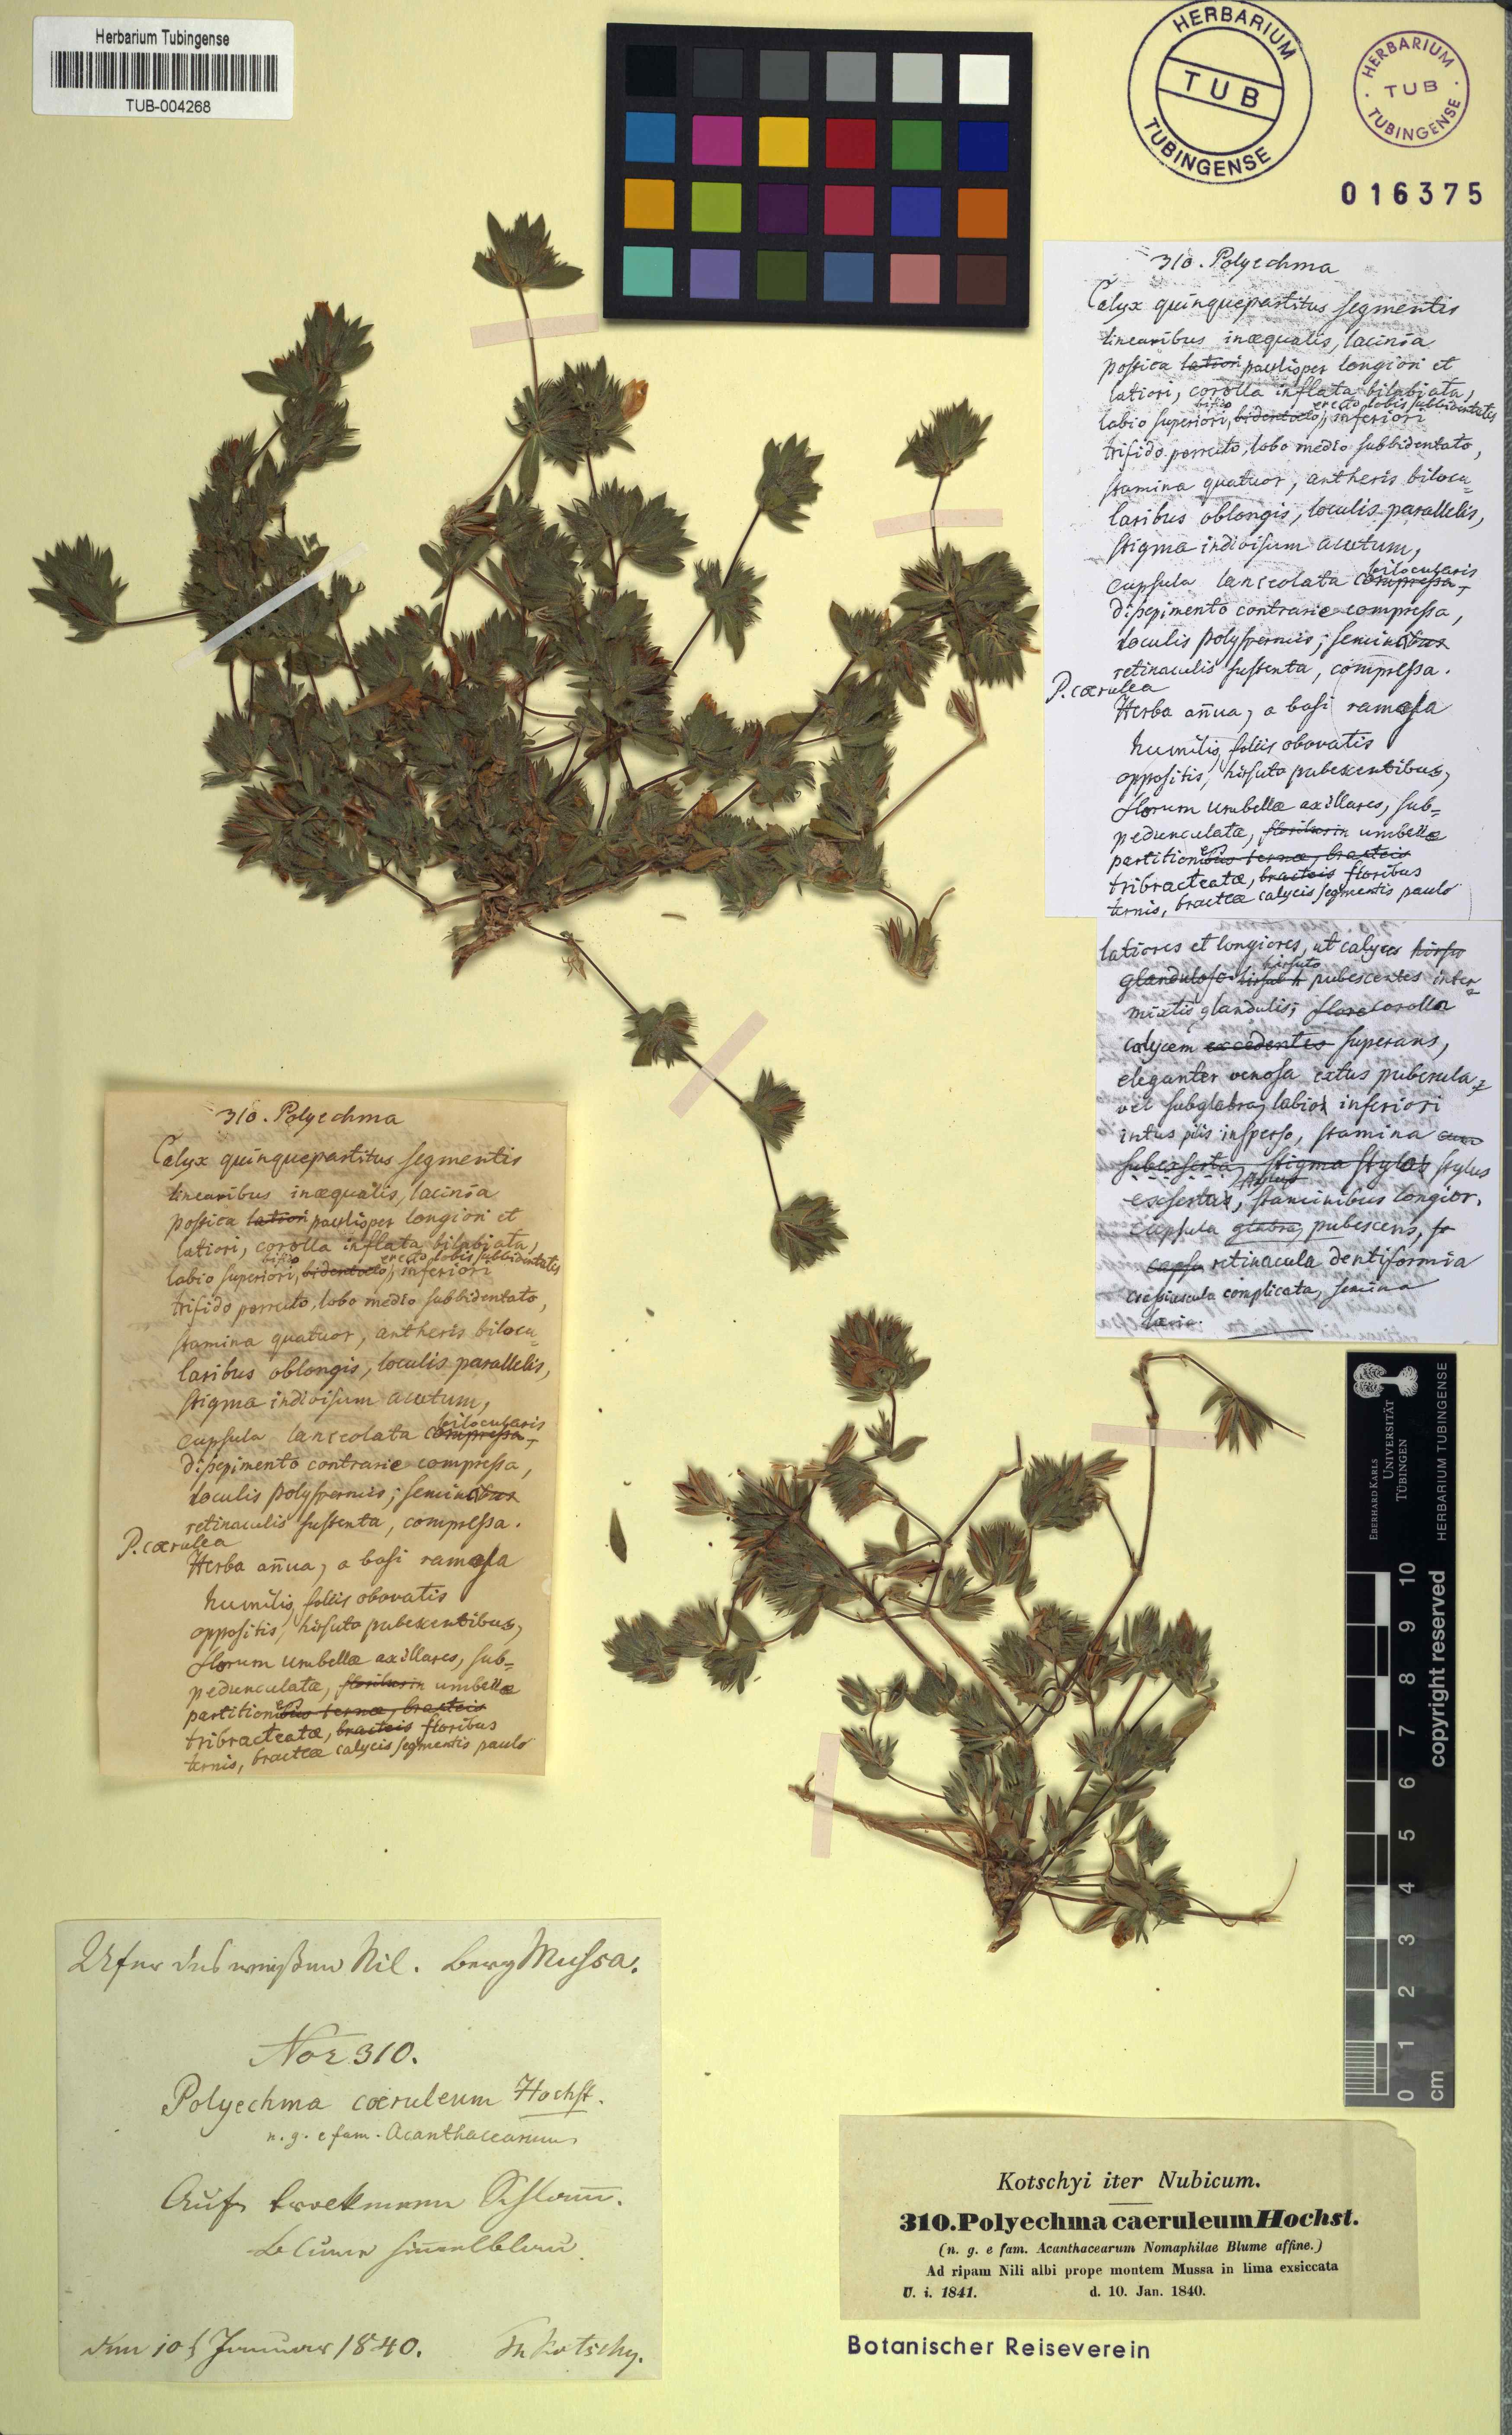 Herbarium Tubingense
TUB-004268
HERBARIUM
TUB
TUBINGENSE
HERBARIUM
TUB
TUBINGENSE
016375
310. Polyechma
Calyx quinquepartitus segmentis
linearibus inæqualis, lacinia
postica latiori paulisper longiori et
latiori, corolla inflata bilabiata,
bifido erecto lobis subbidentatis
labio superiori, bidentato, inferiori
trifido porrecto, lobo medio subbidentato,
stamina quatuor, antheris bilocu=
laribus oblongis, loculis parallelis,
stigma indivisum acutum,
bilocularis
capsula lanceolata compressa
dissepimento contrarie compressa,
loculis polyspermis; seminibus
retinaculis sustenta, compressa.
P. cærulea
Herba añua, a basi ramosa
humilis, foliis obovatis
oppositis, hirsuto pubescentibus,
florum umbellæ axillares, sub=
pedunculatæ, floribus in umbellæ
partitionibus ternæ, bracteis
tribracteatæ, bracteis floribus
ternis, bracteæ calycis segmentis paulo
latiores et longiores, ut calyces hirsu
hirsuto
glanduloso pubescentes inter=
mixtis glandulis; flore corolla
calycem excedentes superans,
eleganter venosa extus puberula
vel subglabra, labio inferiori
intus pilis insperso, stamina
subexserta, stigma stylus
exsertus, staminibus longior.
capsula glabra, pubescens,
capsu retinacula dentiformia
complicata, semina
310. Polyechma
Calyx quinquepartitus segmentis
linearibus inæqualis, lacinia
postica latiori paulisper longiori et
latiori, corolla inflata bilabiata,
bifido erecto lobis subbidentatis
labio superiori, bidentato, inferiori
trifido porrecto, lobo medio subbidentato,
stamina quatuor, antheris bilocu=
laribus oblongis, loculis parallelis,
stigma indivisum acutum,
bilocularis
capsula lanceolata compressa
dissepimento contrarie compressa,
loculis polyspermis; seminibus
retinaculis sustenta, compressa.
P. cærulea
Herba añua, a basi ramosa
humilis, foliis obovatis
oppositis, hirsuto pubescentibus,
florum umbellæ axillares, sub=
pedunculatæ, floribus in umbellæ
partitionibus ternæ, bracteis
tribracteatæ, bracteis floribus
ternis, bracteæ calycis segmentis paulo
Ufer des weißen Nil. Berg Mussa.
No 310.
Polyechma cœruleum Hochst.
n. g. e fam. Acanthacearum
Auf trockenem Schlam̅.
Blume him̅elblau.
Den 10t Januar 1840. Th Kotschy.
EBERHARD KARLS
UNIVERSITÄT
TÜBINGEN
HERBARIUM TUBINGENSE
copyright reserved
0 1 2 3 4 5 6 7 8 9 10
cm
Kotschyi iter Nubicum.
310. Polyechma caeruleum Hochst.
(n. g. e fam. Acanthacearum Nomaphilae Blume affine.)
Ad ripam Nili albi prope montem Mussa in lima exsiccata
U. i. 1841. d. 10. Jan. 1840.
Botanischer Reiseverein